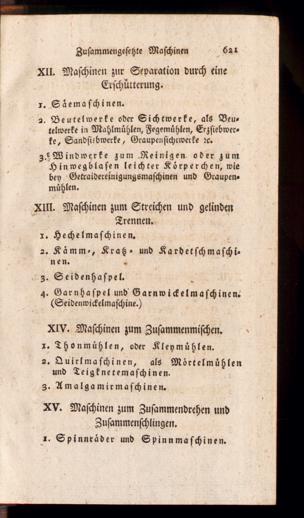 Zusammengesetzte Maschinen 621
XII. Maschinen zur Separation durch eine
Erschütterung.
1. Säemaschinen.
2. Beutelwerke oder Sichtwerke, als Beu-
telwerke in Mahlmühlen, Fegemühlen, Erzsiebwer-
ke, Sandsiebwerke, Graupensichtwerke ꝛc.
3. Windwerke zum Reinigen oder zum
Hinwegblasen leichter Körperchen, wie
bey Getraidereinigungsmaschinen und Graupen-
mühlen.
XIII. Maschinen zum Streichen und gelinden
Trennen.
1. Hechelmaschinen.
2. Kämm-, Kratz- und Kardetschmaschi-
nen.
3. Seidenhaspel.
4. Garnhaspel und Garnwickelmaschinen.
(Seidenwickelmaschine.)
XIV. Maschinen zum Zusammenmischen.
1. Thonmühlen, oder Kleymühlen.
2. Quirlmaschinen, als Mörtelmühlen
und Teigknetemaschinen.
3. Amalgamirmaschinen.
XV. Maschinen zum Zusammendrehen und
Zusammenschlingen.
1. Spinnräder und Spinnmaschinen.